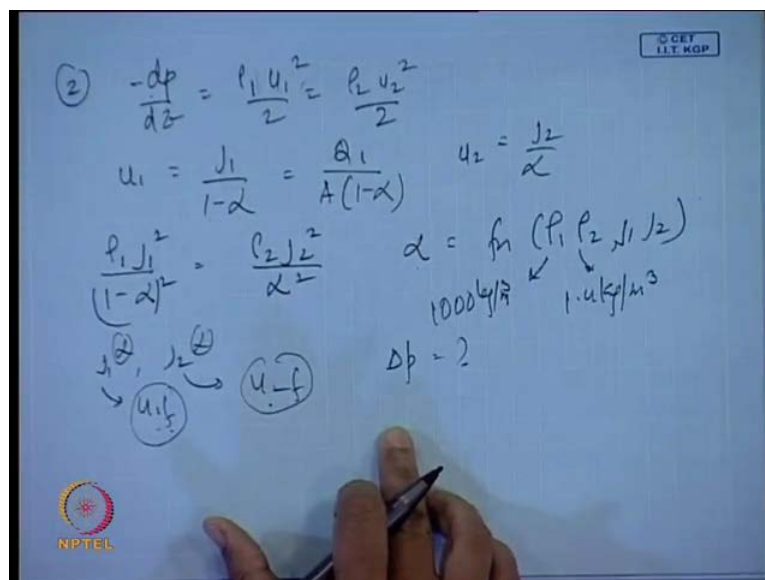 © CET
I.I.T. KGP
② -dp/dz = ρ₁u₁²/2 = ρ₂u₂²/2
u₁ = j₁/(1-α) = Q₁/(A(1-α))
u₂ = j₂/α
ρ₁j₁²/(1-α)² = ρ₂j₂²/α²
α = fn (ρ₁ ρ₂, j₁ j₂)
1000 kg/m³
j₁, j₂
Δp = ?
NPTEL